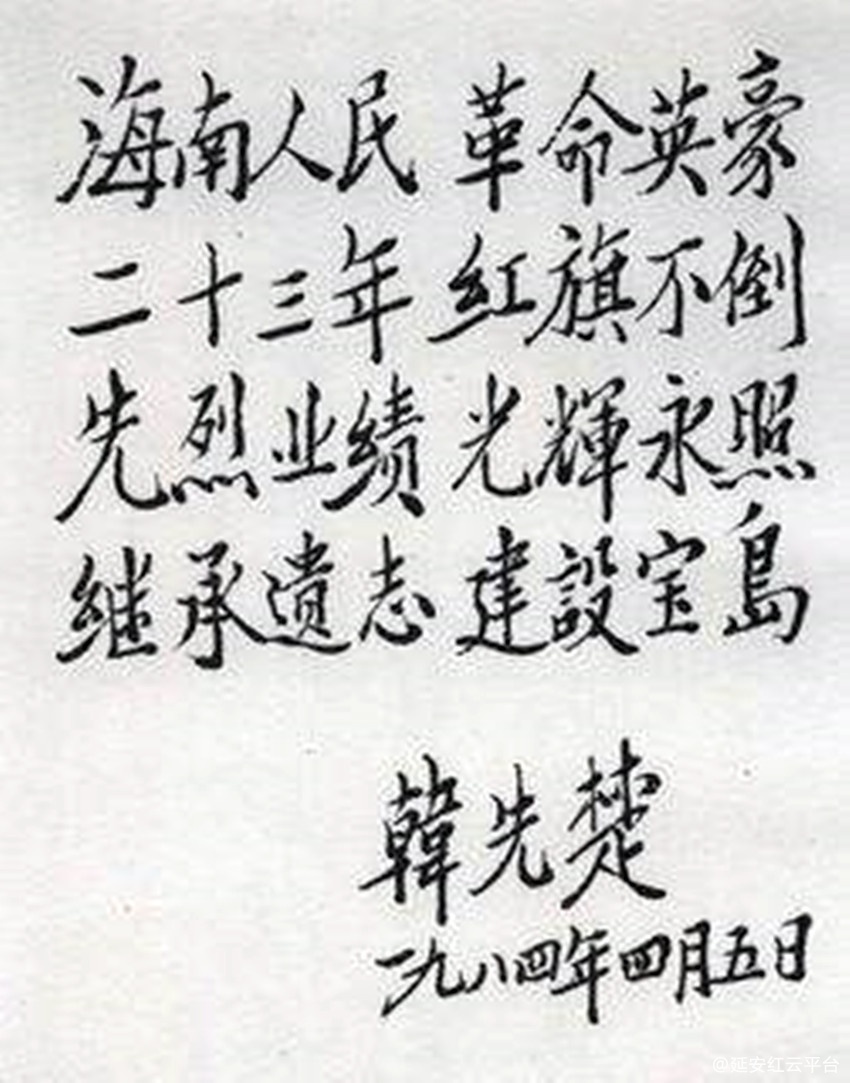 海南人民 革命英豪
二十三年 紅旗不倒
先烈业绩 光輝永照
继承遗志 建設宝島
韓先楚
一九八四年四月五日
@延安红云平台